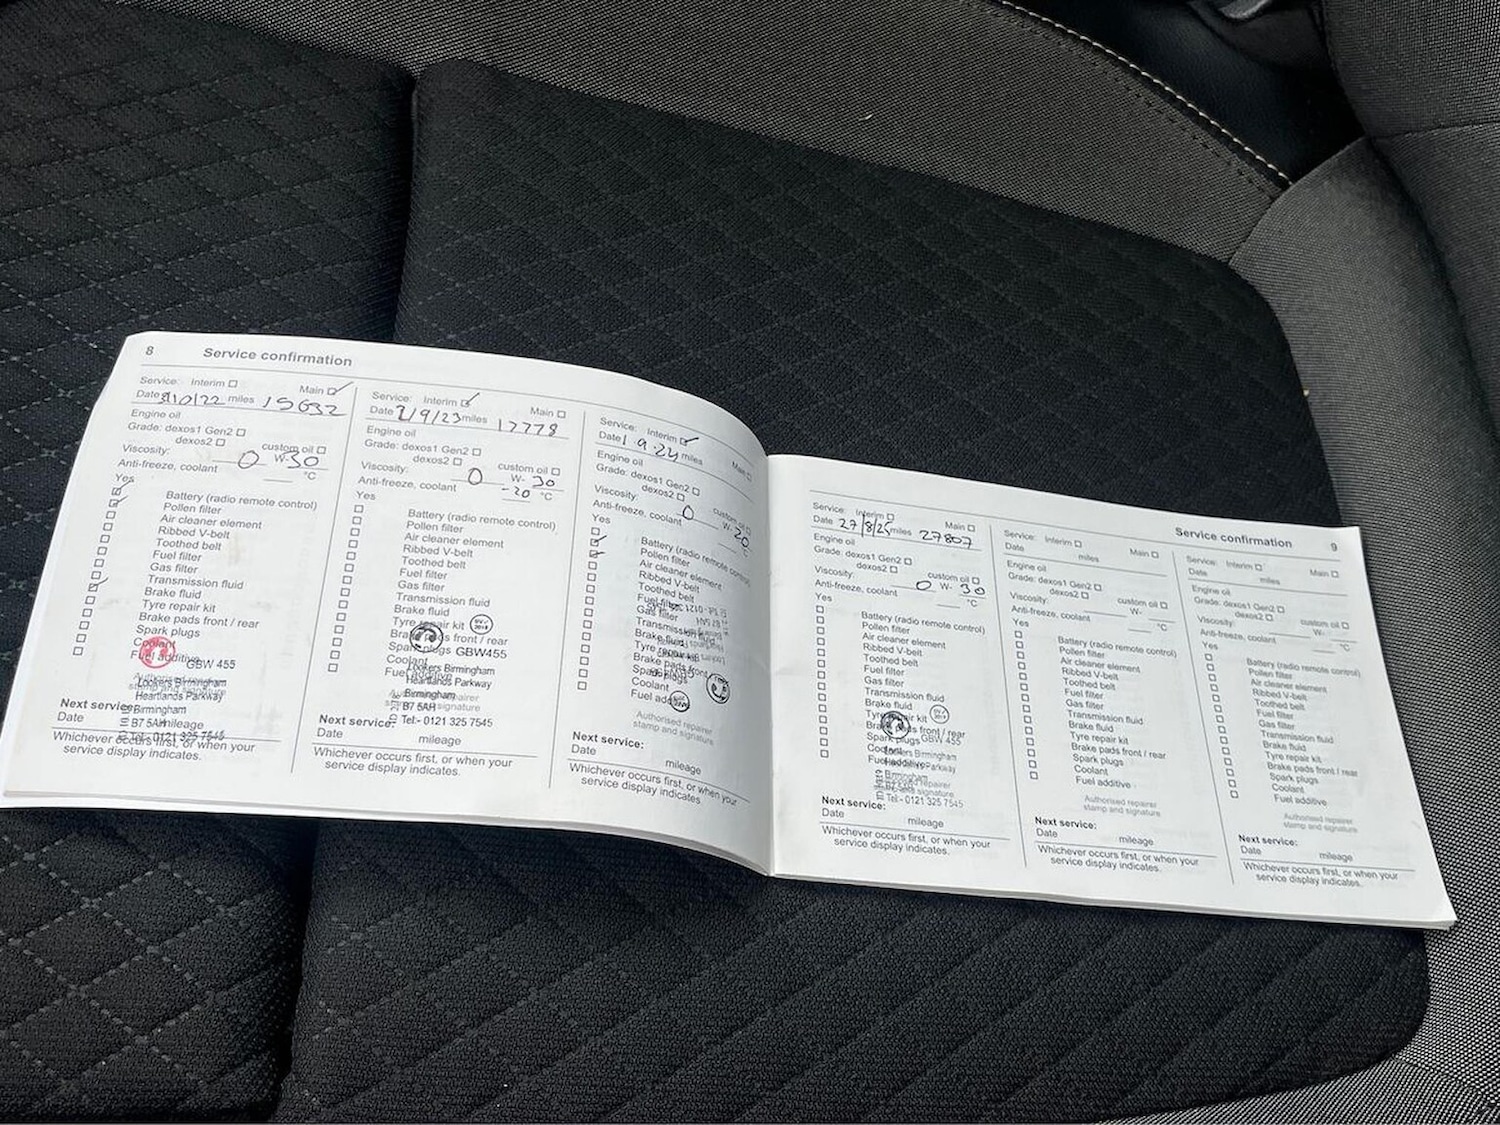 8 Service confirmation
Service: Interim Main
Date /10/22 miles 15632
Engine oil
Grade: dexos1 Gen2
dexos2 custom oil
Viscosity: 0 W-30
Anti-freeze, coolant °C
Yes
Battery (radio remote control)
Pollen filter
Air cleaner element
Ribbed V-belt
Toothed belt
Fuel filter
Gas filter
Transmission fluid
Brake fluid
Tyre repair kit
Brake pads front / rear
Spark plugs
Coolant
Fuel additive
GBW 455
Authorised repairer
stamp and signature
Lookers Birmingham
Heartlands Parkway
Birmingham
B7 5AH
Tel:- 0121 325 7545
Next service:
Date mileage
Whichever occurs first, or when your
service display indicates.
Service: Interim Main
Date 2/9/23 miles 17778
Engine oil
Grade: dexos1 Gen2
dexos2 custom oil
Viscosity: 0 W- 30
Anti-freeze, coolant -20 °C
Yes
Battery (radio remote control)
Pollen filter
Air cleaner element
Ribbed V-belt
Toothed belt
Fuel filter
Gas filter
Transmission fluid
Brake fluid
Tyre repair kit
Brake pads front / rear
Spark plugs GBW455
Coolant
Fuel additive
Lookers Birmingham
Heartlands Parkway
Birmingham
B7 5AH
Tel:- 0121 325 7545
Next service:
Date mileage
Whichever occurs first, or when your
service display indicates.
Service: Interim Main
Date 1 9.24 miles
Engine oil
Grade: dexos1 Gen2
dexos2 custom oil
Viscosity: 0 W-20
Anti-freeze, coolant °C
Yes
Battery (radio remote control)
Pollen filter
Air cleaner element
Ribbed V-belt
Toothed belt
Fuel filter
Gas filter
Transmission fluid
Brake fluid
Tyre repair kit
Brake pads front / rear
Spark plugs
Coolant
Fuel additive
Authorised repairer
stamp and signature
Next service:
Date mileage
Whichever occurs first, or when your
service display indicates
Service confirmation 9
Service: Interim Main
Date 27/8/25 miles 27807
Engine oil
Grade: dexos1 Gen2
dexos2 custom oil
Viscosity: 0 W- 30
Anti-freeze, coolant °C
Yes
Battery (radio remote control)
Pollen filter
Air cleaner element
Ribbed V-belt
Toothed belt
Fuel filter
Gas filter
Transmission fluid
Brake fluid
Tyre repair kit
Brake pads front / rear
Spark plugs GBW 455
Coolant
Fuel additive
Lookers Birmingham
Heartlands Parkway
Birmingham
B7 5AH
Tel:- 0121 325 7545
Next service:
Date mileage
Whichever occurs first, or when your
service display indicates.
Service: Interim Main
Date miles
Engine oil
Grade: dexos1 Gen2
dexos2 custom oil
Viscosity: W-
Anti-freeze, coolant °C
Yes
Battery (radio remote control)
Pollen filter
Air cleaner element
Ribbed V-belt
Toothed belt
Fuel filter
Gas filter
Transmission fluid
Brake fluid
Tyre repair kit
Brake pads front / rear
Spark plugs
Coolant
Fuel additive
Authorised repairer
stamp and signature
Next service:
Date mileage
Whichever occurs first, or when your
service display indicates.
Service: Interim Main
Date miles
Engine oil
Grade: dexos1 Gen2
dexos2 custom oil
Viscosity: W-
Anti-freeze, coolant °C
Yes
Battery (radio remote control)
Pollen filter
Air cleaner element
Ribbed V-belt
Toothed belt
Fuel filter
Gas filter
Transmission fluid
Brake fluid
Tyre repair kit
Brake pads front / rear
Spark plugs
Coolant
Fuel additive
Authorised repairer
stamp and signature
Next service:
Date mileage
Whichever occurs first, or when your
service display indicates.